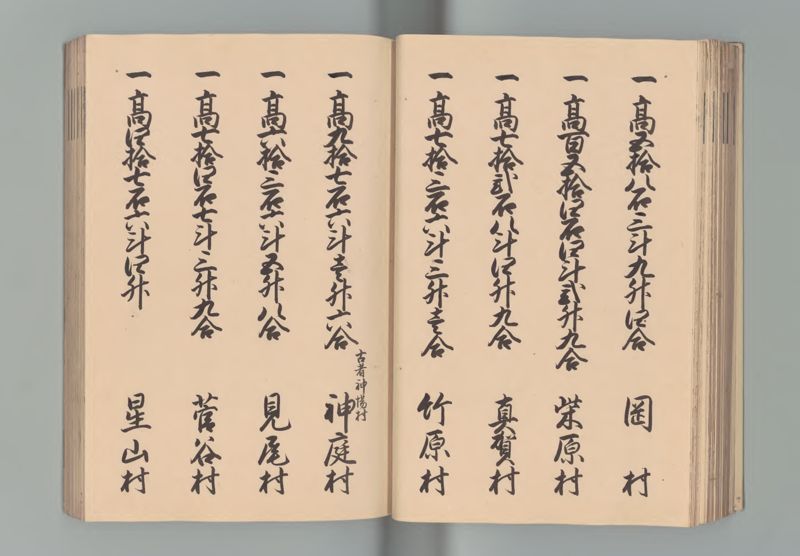 一高五拾八石三斗九升四合 岡村
一高百五拾四石四斗弐升九合 柴原村
一高七拾弐石八斗四升九合 真賀村
一高七拾三石六斗三升壱合 竹原村
一高九拾七石六斗壱升六合 神庭村
古者神場村
一高六拾三石六斗五升八合 見尾村
一高七拾四石七斗三升九合 菅谷村
一高四拾七石六斗四升 星山村